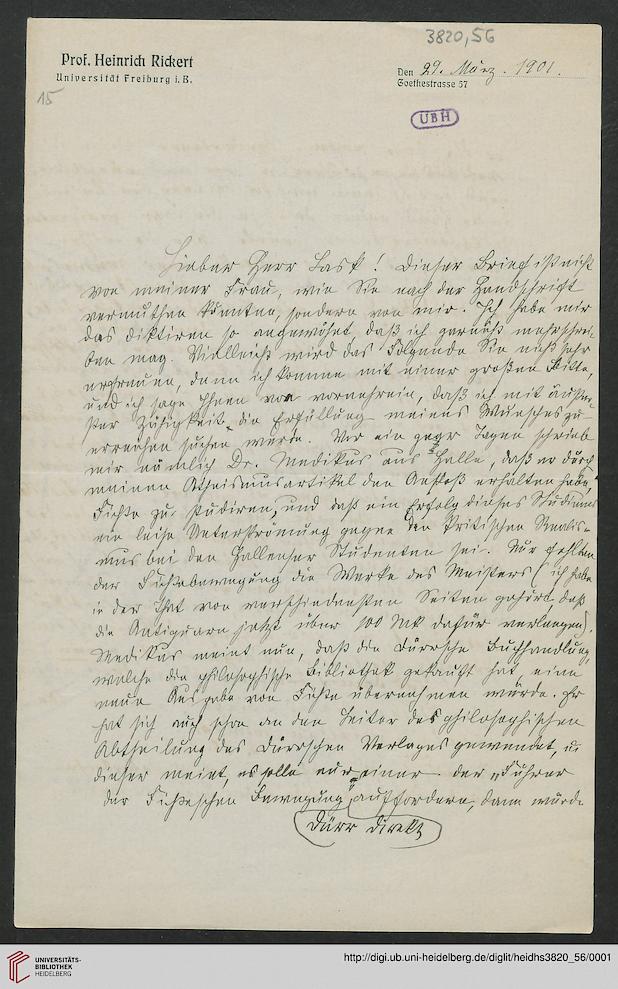 3820,56
Prof. Heinrich Rickert
Universität Freiburg i. B.
Den 29. März. 1901.
Goethestrasse 57
15
UBH
Lieber Herr Lask! Dieser Brief ist nicht
von meiner Frau, wie Sie nach der Handschrift
vermuthen könnten, sondern von mir. Ich habe mir
das Diktiren so angewöhnt, daß ich garnicht mehr schrei-
ben mag. Vielleicht wird das Folgende Sie nicht sehr
erfreuen, denn ich komme mit einer großen Bitte,
und ich sage Ihnen von vornherein, daß ich mit äußer-
ster Zähigkeit die Erfüllung meines Wunsches zu
erreichen suchen werde. Vor ein paar Tagen schrieb
mir nämlich Dr. Medikus aus Halle, daß er durch
meinen Atheismusartikel den Anstoß erhalten habe,
Fichte zu studiren, und daß ein Erfolg dieses Studiums
eine leise Unterströmung gegen den kritischen Realis-
mus bei den Hallenser Studenten sei. Nur fehlten
der Fichtebewegung die Werke des Meisters (ich habe
in der That von verschiedensten Seiten gehört, daß
die Antiquare jetzt über 100 Mk dafür verlangen).
Medikus meint nun, daß die Dürrsche Buchhandlung,
welche die philosophische Bibliothek gekauft hat, eine
neue Ausgabe von Fichte übernehmen würde. Er
hat sich auch schon an den Leiter des philosophischen
Abtheilung des Dürrschen Verlages gewendet, u.
dieser meint, es solle nur einer der „Führer
der Fichteschen Bewegung“ auffordern, dann würde
Dürr direkt
UNIVERSITÄTS-
BIBLIOTHEK
HEIDELBERG
http://digi.ub.uni-heidelberg.de/diglit/heidhs3820_56/0001